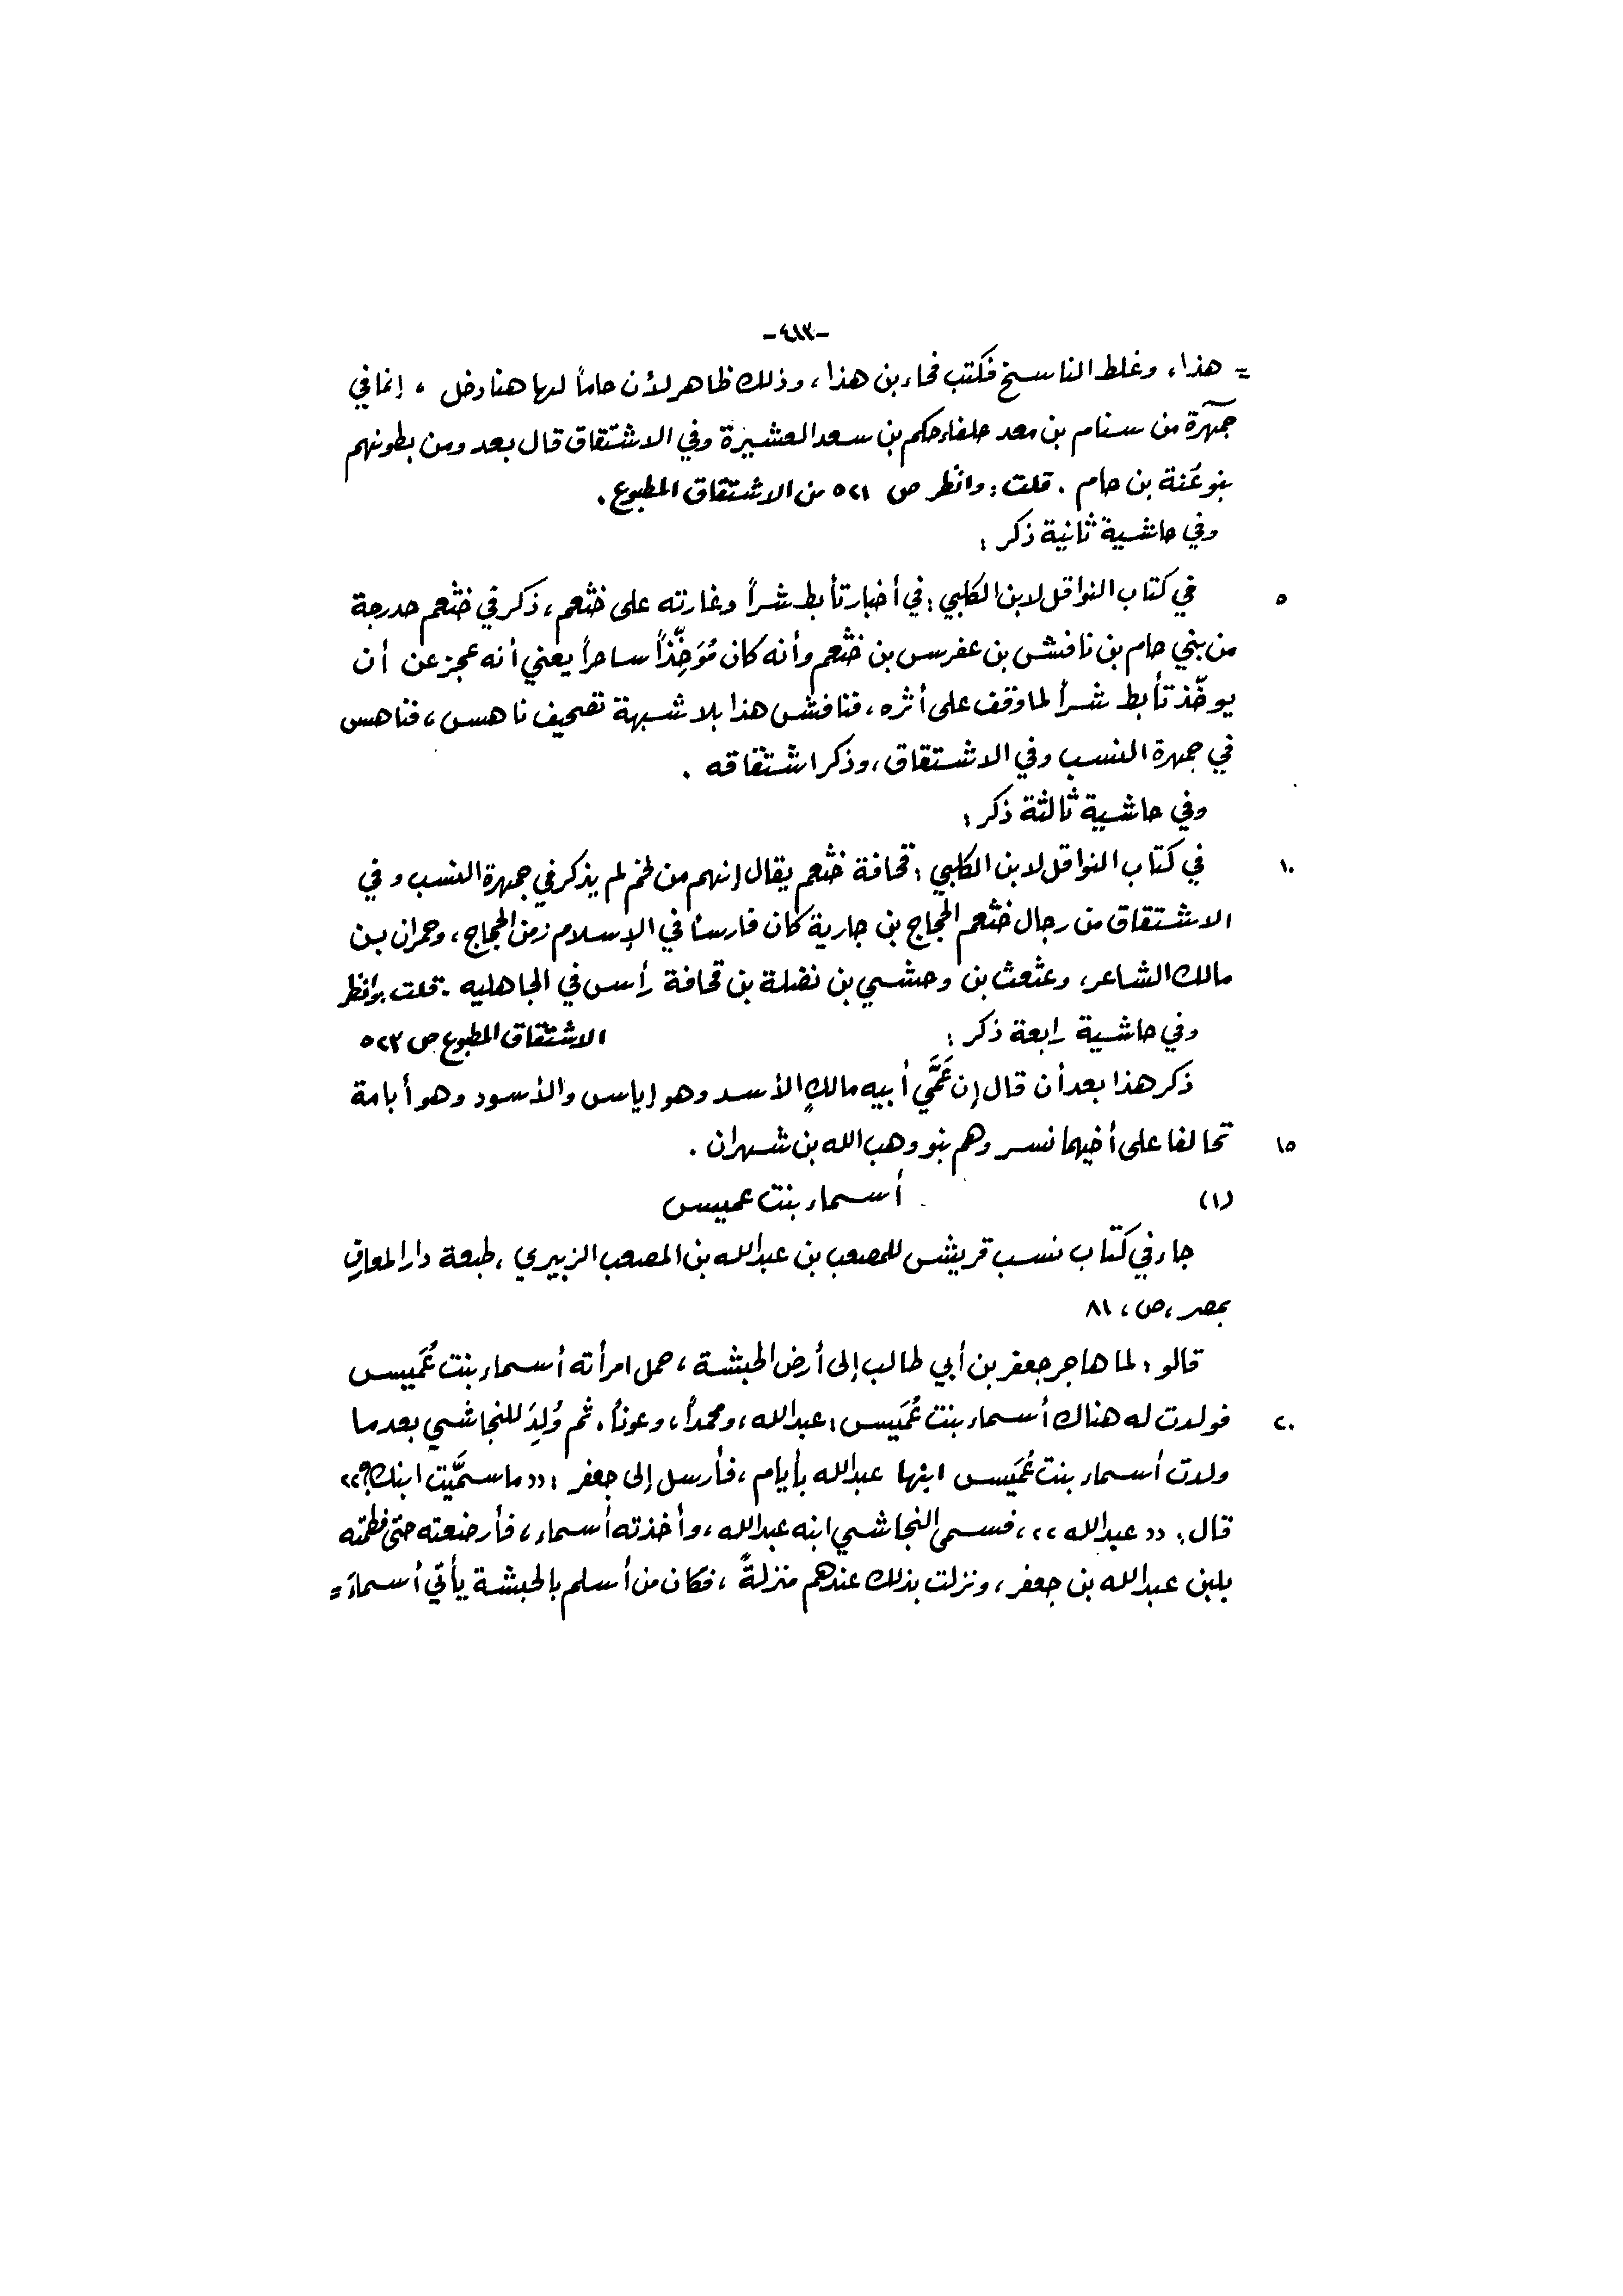 -٤١٣-
= هذا، وغلط الناسخ فكتب فحاء بن هذا، وذلك ظاهر لأن حاماً لها هنا دخل، إنما في
جمهرة من سنام بن معد حلفاء حكم بن سعد العشيرة وفي الاشتقاق قال بعد ومن بطونهم
بنو عُنة بن حام. قلت: وانظر ص ٥٢١ من الاشتقاق المطبوع.
وفي حاشية ثانية ذكر:
٥ في كتاب النواقل لابن الكلبي: في أخبار تأبط شراً وغارته على خثعم، ذكر في خثعم حدرجة
من بني حام بن نافش بن عفرس بن خثعم وأنه كان مُوَخِّذاً ساحراً يعني أنه عجز عن أن
يوخّذ تأبط شراً لما وقف على أثره، فنافش هذا بلا شبهة تصحيف ناهس، فناهس
في جمهرة النسب وفي الاشتقاق، وذكر اشتقاقه.
وفي حاشية ثالثة ذكر:
١٠ في كتاب النواقل لابن الكلبي: قحافة خثعم يقال إنهم من لخم لم يذكر في جمهرة النسب وفي
الاشتقاق من رجال خثعم الحجاج بن جارية كان فارساً في الإسلام زمن الحجاج، وحمران بن
مالك الشاعر، وعثعث بن وحشي بن نضلة بن قحافة رأس في الجاهليه - قلت: وانظر
الاشتقاق المطبوع ص ٥٢٣
وفي حاشية رابعة ذكر:
ذكر هذا بعد أن قال إن عَمَّي أبيه مالكٍ الأسد وهو إياس والأسود وهو أبامة
١٥ تحالفا على أخيهما نسر وهم بنو وهب الله بن شهران.
(١) أسماء بنت عميس
جاء في كتاب نسب قريش للمصعب بن عبدالله بن المصعب الزبيري، طبعة دار المعارف
بمصر، ص، ٨١
قالو: لما هاجر جعفر بن أبي طالب إلى أرض الحبشة، حمل امرأته أسماء بنت عُمَيس
٢٠ فولدت له هناك أسماء بنت عُمَيس: عبدالله، ومحمداً، وعوناً. ثم وُلِدَ للنجاشي بعدما
ولدت أسماء بنت عُمَيس ابنها عبدالله بأيام، فأرسل إلى جعفر: «ما سمَّيت ابنك؟»
قال: «عبدالله»، فسمى النجاشي ابنه عبدالله، وأخذته أسماء، فأرضعته حتى فطمته
بلبن عبدالله بن جعفر، ونزلت بذلك عندهم منزلةً، فكان من أسلم بالحبشة يأتي أسماءَ =